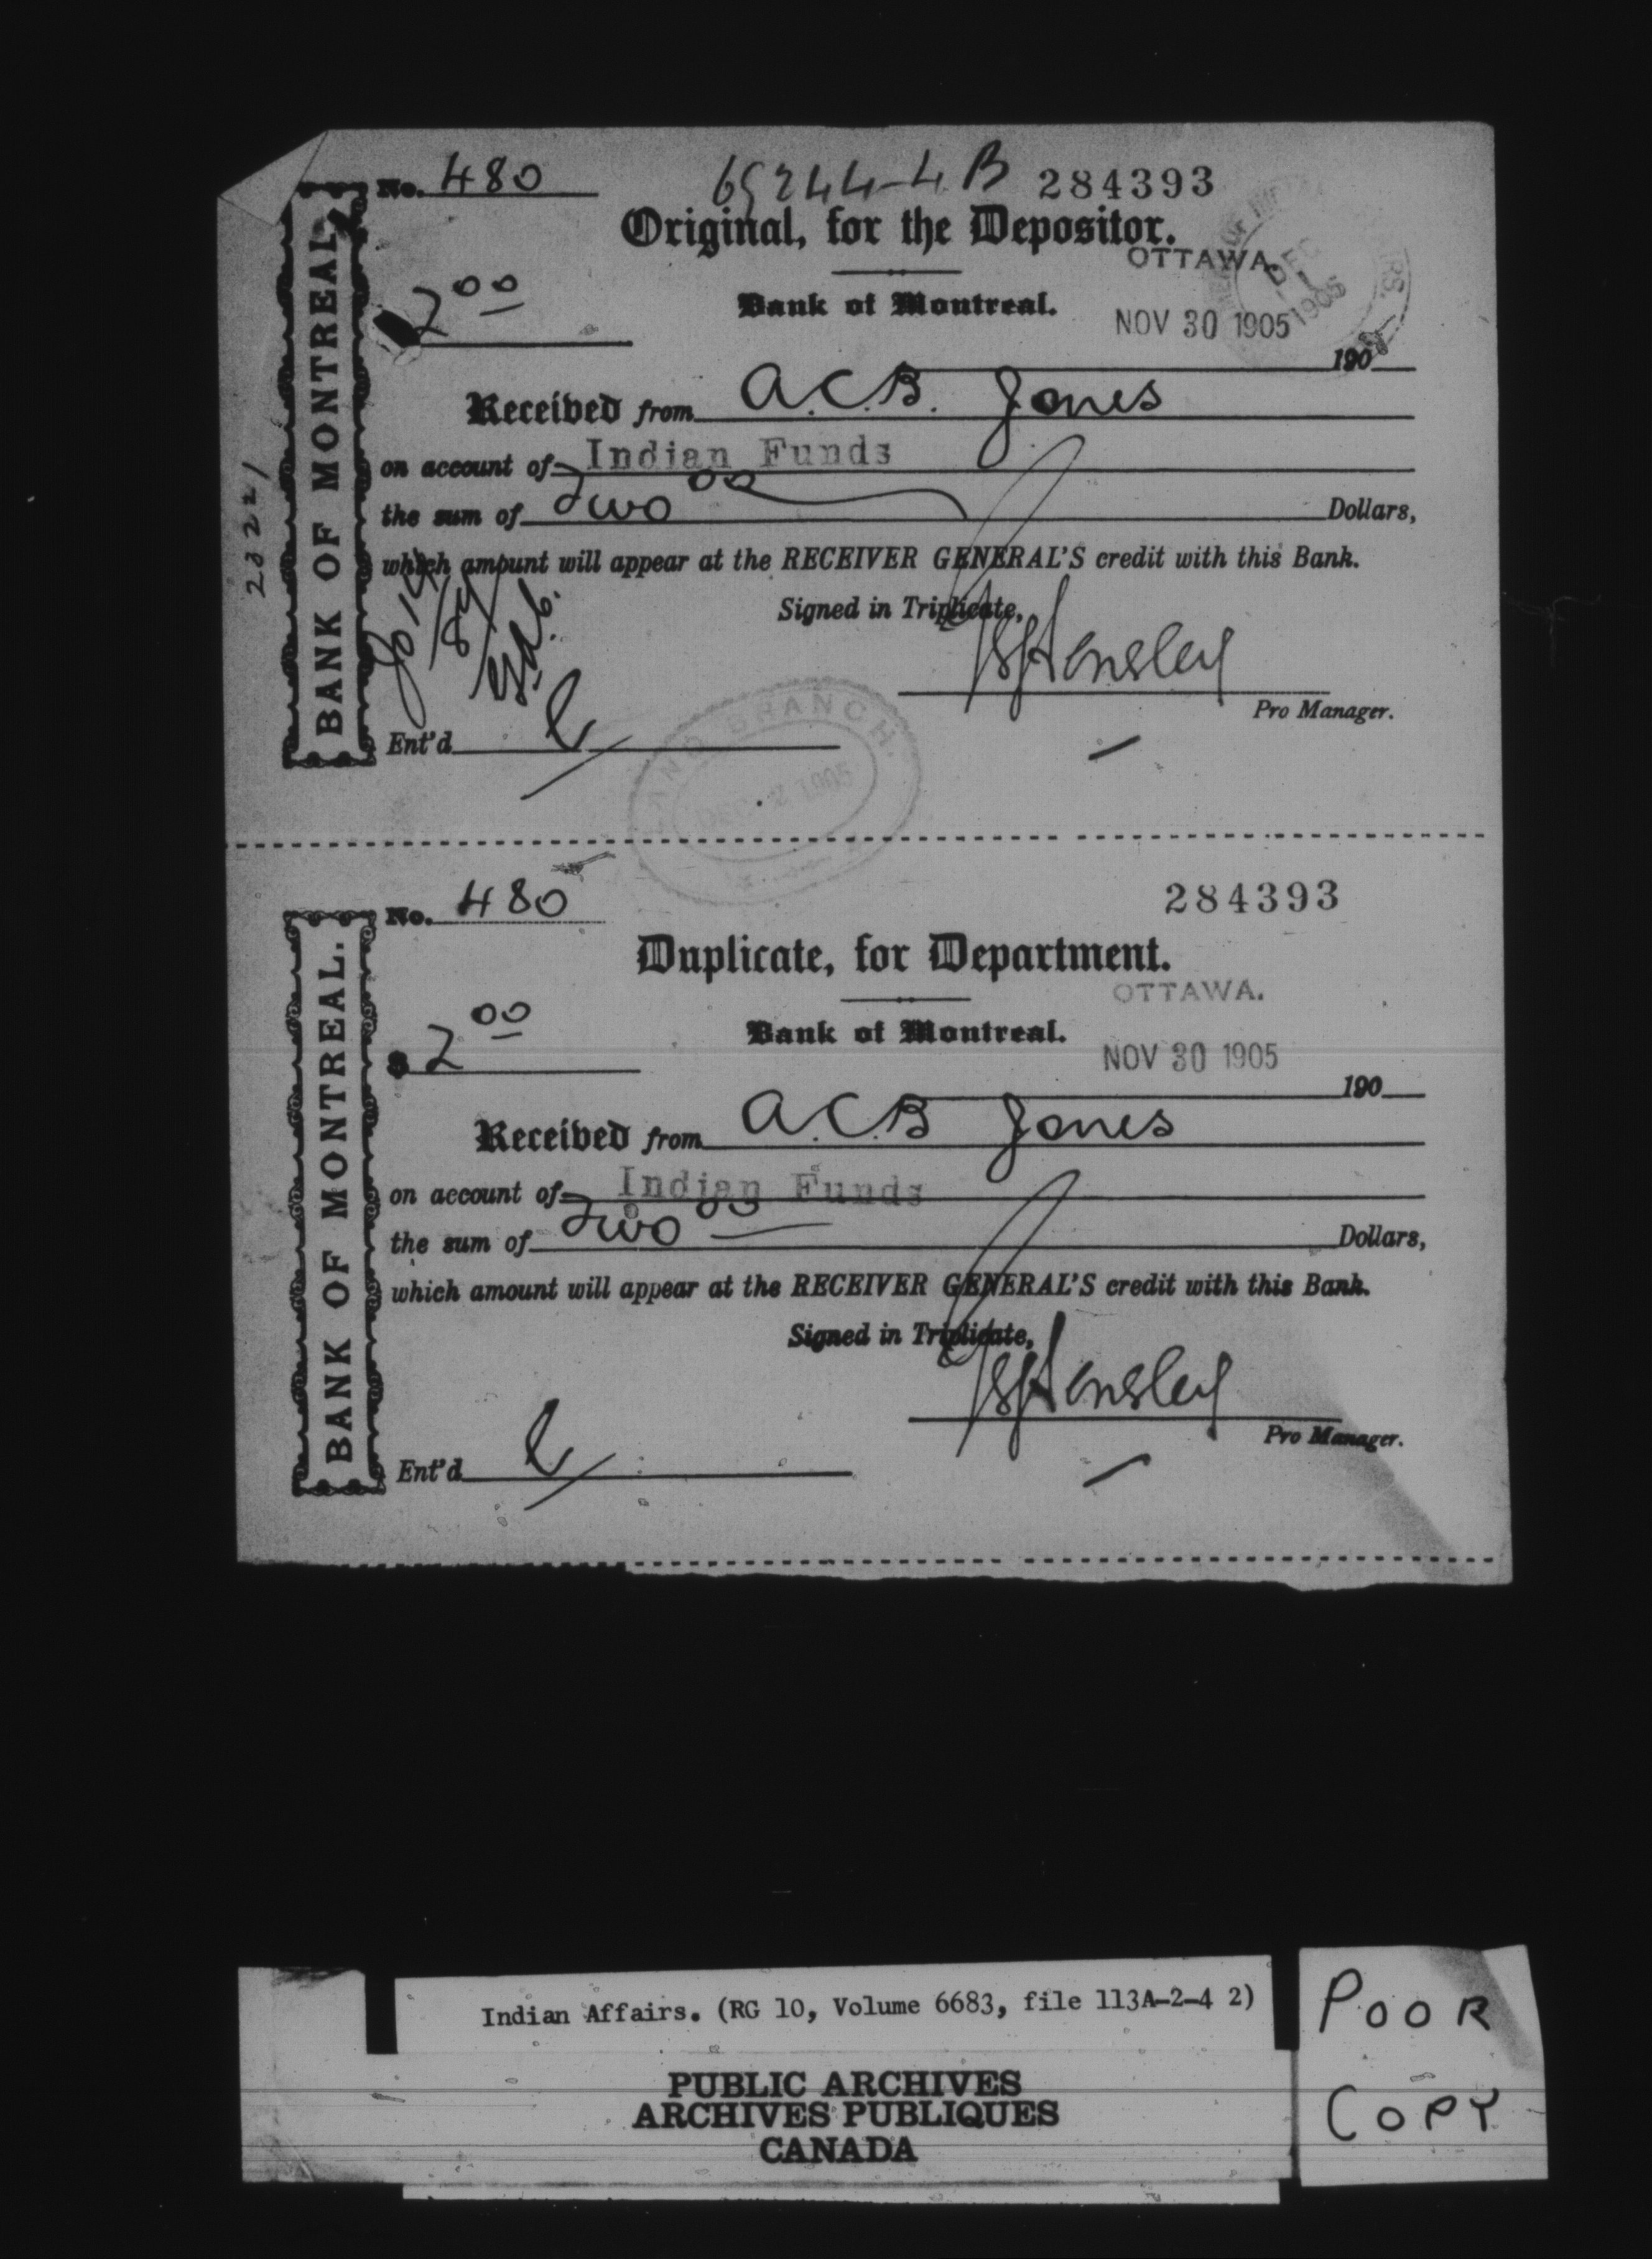 No. 480 284393
Original, for the Depositor.
OTTAWA.
DEC 1 1905
2 00
Bank of Montreal.
NOV 30 1905
190
Received from A.C.B. Jones
on account of Indian Funds
the sum of Two 00 Dollars,
which amount will appear at the RECEIVER GENERAL'S credit with this Bank.
Signed in Triplicate,
Hensley
Pro Manager.
Ent'd
BANK OF MONTREAL.
23221
BRANCH.
DEC 2 1905
No. 480
284393
Duplicate, for Department.
OTTAWA.
$ 2 00
Bank of Montreal.
NOV 30 1905
190
Received from A.C.B Jones
on account of Indian Funds
the sum of Two 00 Dollars,
which amount will appear at the RECEIVER GENERAL'S credit with this Bank.
Signed in Triplicate,
Hensley
Pro Manager.
Ent'd
BANK OF MONTREAL.
Indian Affairs. (RG 10, Volume 6683, file 113A-2-4 2)
PUBLIC ARCHIVES
ARCHIVES PUBLIQUES
CANADA
POOR
COPY